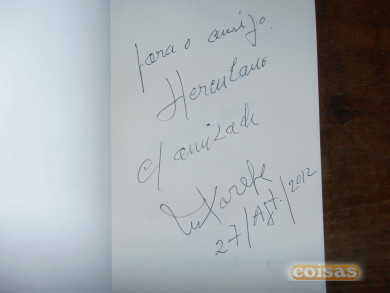 para o amigo
Herculano
c/ amizade
27/Agt./2012
coisas